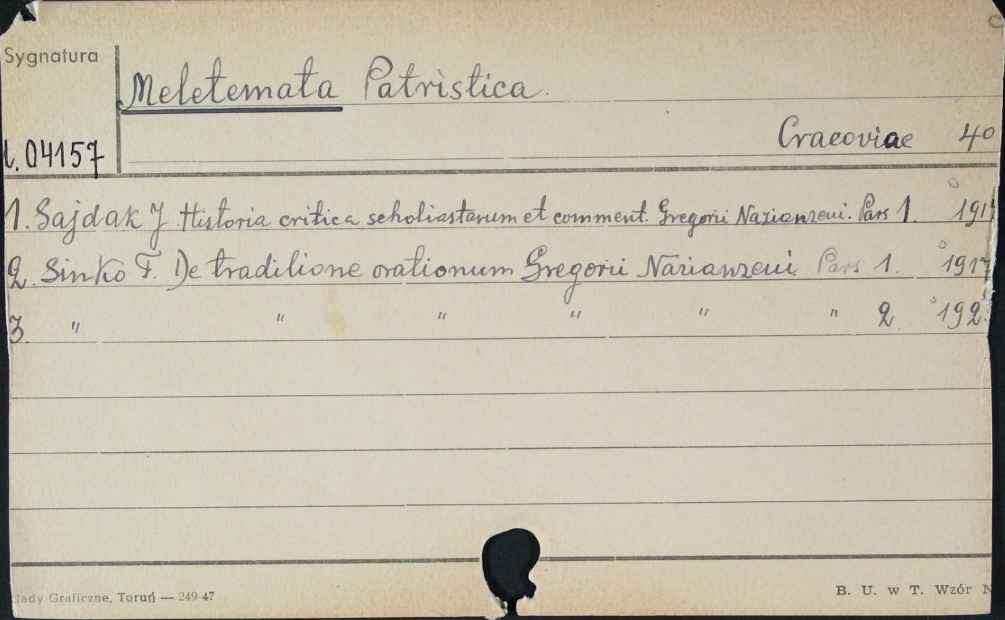 Sygnatura
Meletemata Patristica.
Cracoviae 4o
04157
1. Sajdak J. Historia critica scholiastarum et comment. Gregorii Nazianzeni. Pars 1. 191
2. Sinko T. De traditione orationum Gregorii Nazianzeni Pars 1. 1917
3. " " " " " " 2 192
łady Graficzne, Toruń — 249-47
B. U. w T. Wzór N